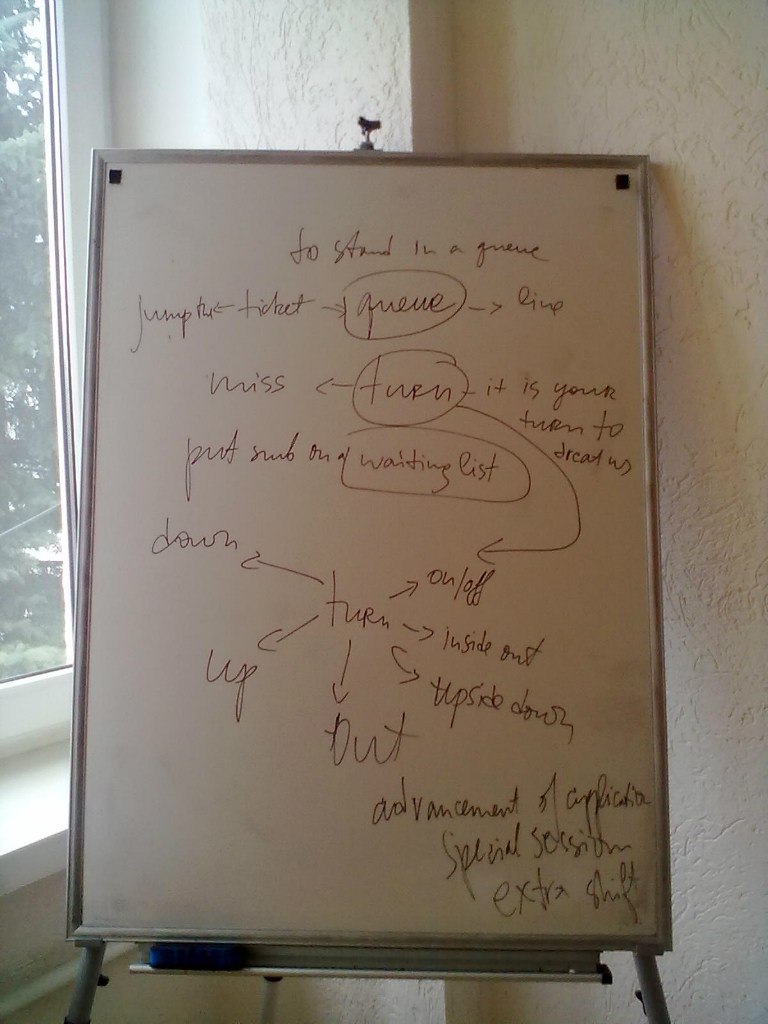 to stand in a queue
jump the ← ticket → queue → line
miss ← turn - it is your
turn to
treat us
put smb on a waiting list
down
on/off
turn
inside out
up
upside down
out
advancement of application
special session
extra shift